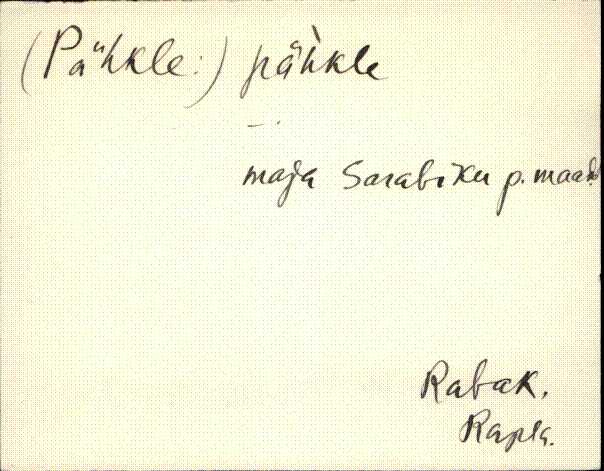 (Pähkle:) pähkle
maja Sarabiku p. maad
Rabak,
Rapla.